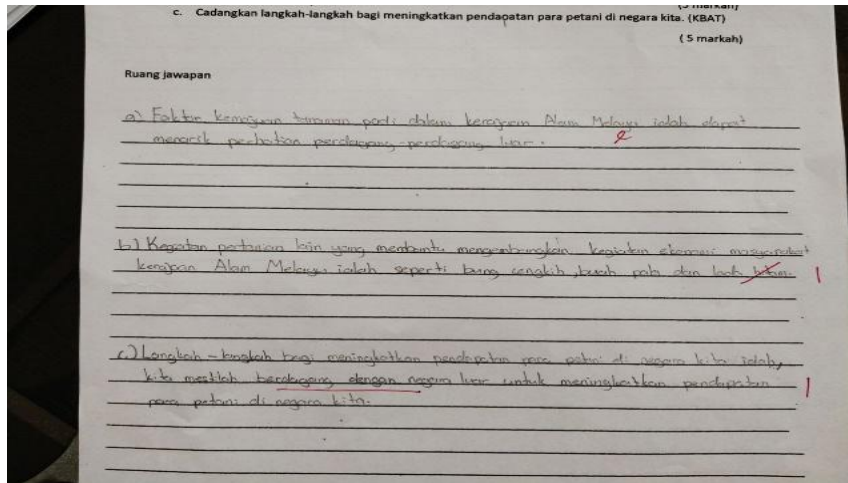 c. Cadangkan langkah-langkah bagi meningkatkan pendapatan para petani di negara kita. (KBAT)
( 5 markah)
Ruang jawapan
a) Faktor kemajuan tanaman padi dalam kerajaan Alam Melayu ialah dapat
menarik perhatian perdagang-perdagang luar.
b) Kegiatan pertanian lain yang membantu mengembangkan kegiatan ekonomi masyarakat
kerajaan Alam Melayu ialah seperti bung cengkih, buah pala dan lada hitam. 1
c.) Langkah-langkah bagi meningkatkan pendapatan para petani di negara kita ialah,
kita mestilah berdagang dengan negara luar untuk meningkatkan pendapatan 1
para petani di negara kita.